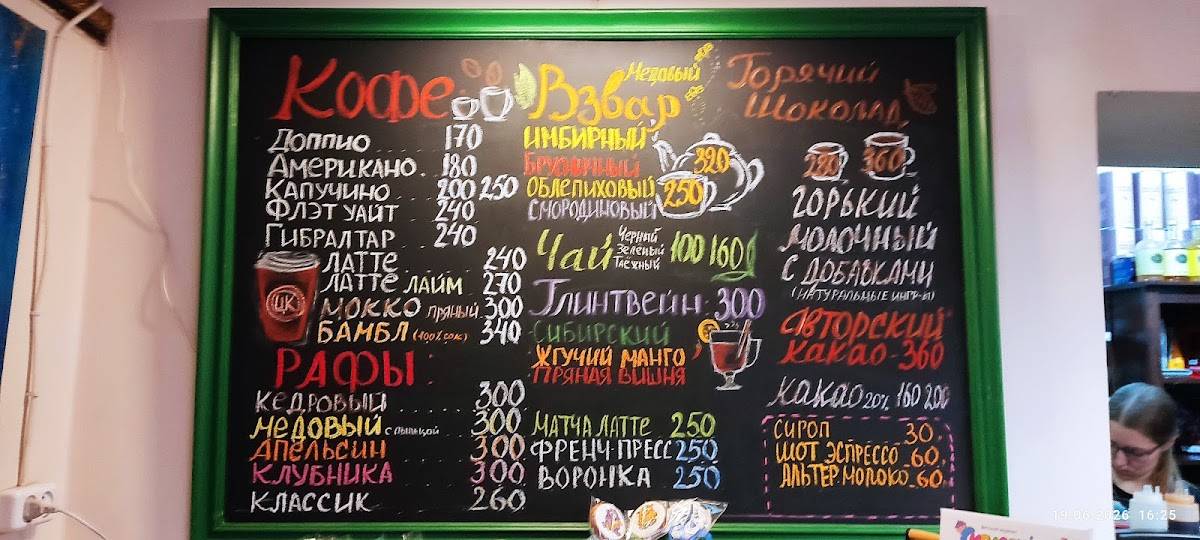 Кофе
Доппио 170
Американо 180
Капучино 200 250
Флэт уайт 240
Гибралтар 240
Латте 240
Латте лайм 270
Мокко пряный 300
Бамбл (100% сок) 340
ЦК
Рафы
Кедровый 300
Медовый с пыльцой 300
Апельсин 300
Клубника 300
Классик 260
Взвар Медовый
Имбирный
Брусничный
Облепиховый
Смородиновый
320
250
Чай Черный Зеленый Таёжный 100 160
Глинтвейн 300
Сибирский
Жгучий манго
Пряная вишня
Матча латте 250
Френч-пресс 250
Воронка 250
Горячий
Шоколад
280 360
Горький
Молочный
С добавками
(натуральные ингр-ы)
Авторский
какао 360
Какао 20% 160 200
Сироп 30
Шот эспрессо 60
Альтер молоко 60
19.06.2026 16:25